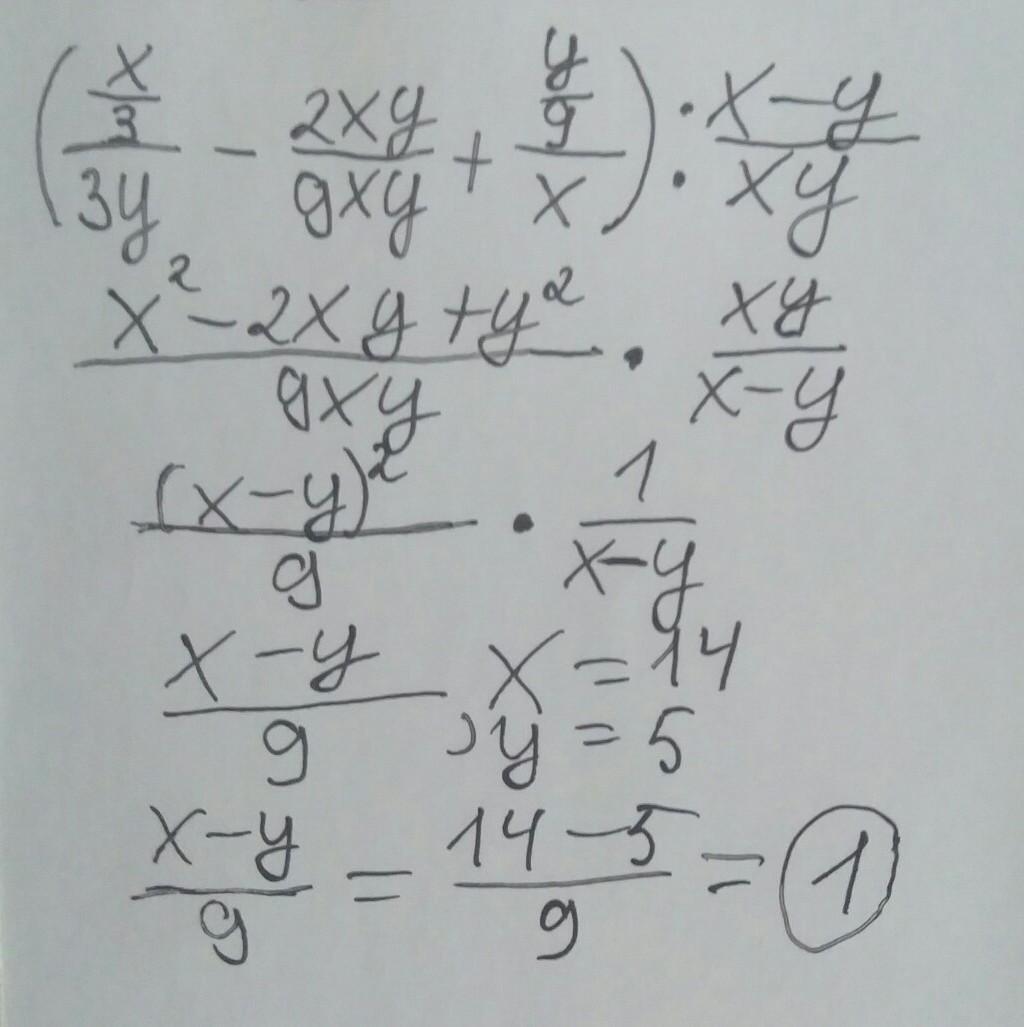 (x/3/3y - 2xy/9xy + y/9/x) : x-y/xy
x² - 2xy + y²/9xy · xy/x-y
(x-y)²/9 · 1/x-y
x-y/9 , x = 14
y = 5
x-y/9 = 14-5/9 = 1